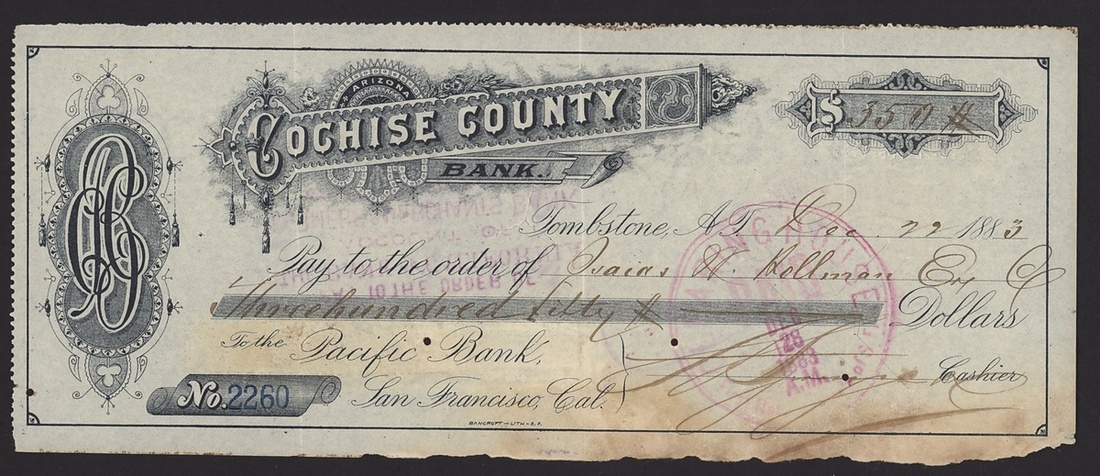 ARIZONA
COCHISE COUNTY
BANK.
$ 350
CCB
Tombstone, A.T. Dec. 22 1883
Pay to the order of Isaias W. Hellman
Three hundred fifty Dollars
To the Pacific Bank,
San Francisco, Cal.
Cashier
No. 2260
BANCROFT - LITH - S.F.
CLEARING HOUSE
PAID
28
1883
A.M.
TO THE ORDER OF
MERCHANTS BANK